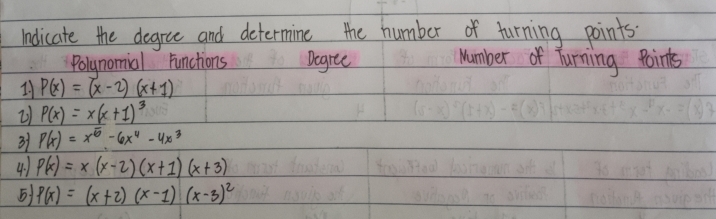 Indicate the degree and determine the number of turning points.
Polynomial Functions Degree Number of Turning Points
1) P(x) = (x-2) (x+1)
2) P(x) = x(x+1)³
3) P(x) = x⁵ -6x⁴ -4x³
4.) P(x) = x (x-2) (x+1) (x+3)
5) P(x) = (x+2) (x-1) (x-3)²